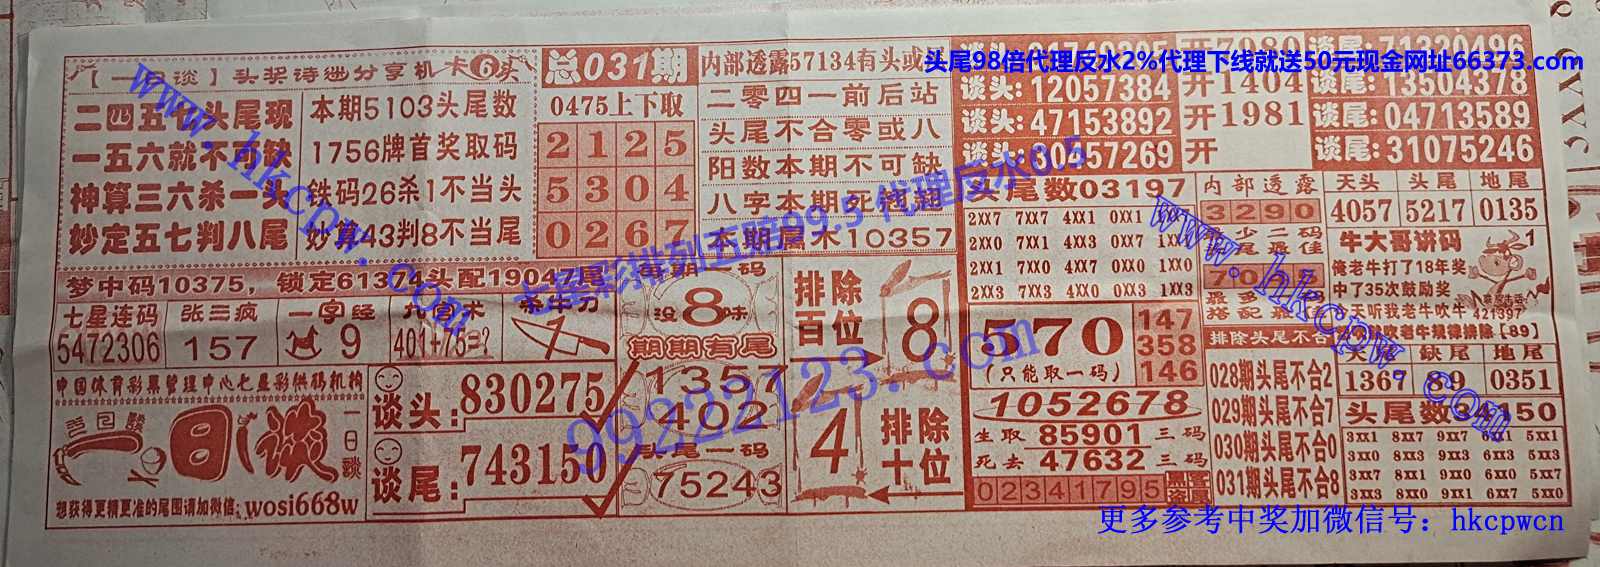 【一日谈】头奖诗迷分享机
卡6头
二四五七头尾现
一五六就不可缺
神算三六杀一头
妙定五七判八尾
本期5103头尾数
1756牌首奖取码
铁码26杀1不当头
妙算43判8不当尾
总031期
0475上下取
2125
5304
0267
内部透露57134有头或尾
二零四一前后站
头尾不合零或八
阳数本期不可缺
八字本期死翘翘
本期属木10357
头尾98倍代理反水2%代理下线就送50元现金网址66373.com
开7980
谈尾:71320496
谈头:12057384
开1404
谈尾:13504378
谈头:47153892
开1981
谈尾:04713589
谈头:30457269
开
谈尾:31075246
梦中码10375，锁定61374头配19047尾
七星连码
5472306
张三疯
157
一字经
9
401+75=?
杀牛刀
每期一码
没8味
期期有尾
1357
402
头尾一码
75243
排除百位
8
4
排除十位
中国体育彩票管理中心七星彩供码机构
一日谈
一日谈
想获得更精更准的尾图请加微信:wosi668w
谈头:830275
谈尾:743150
头尾数03197
2XX7 7XX7 4XX1 0XX1 1XX7
2XX0 7XX1 4XX3 0XX7 1XX1
2XX1 7XX0 4XX0 0XX0 1XX0
2XX3 7XX3 4XX0 0XX3 1XX3
570
(只能取一码)
147
358
146
1052678
生取85901三码
死去47632三码
02341795
黑客盗版
内部透露
3290
最多
搭配最佳
排除头尾不合
028期头尾不合2
029期头尾不合7
030期头尾不合0
031期头尾不合8
天头 头尾 地尾
4057 5217 0135
牛大哥讲码
俺老牛打了18年奖
中了35次鼓励奖
天听我老牛吹牛
421397
吹老牛规律排除【89】
天头 缺尾 地尾
1367 89 0351
头尾数34150
3XX1 8XX7 9XX7 6XX1 5XX1
3XX7 8XX1 9XX3 6XX7 5XX3
3XX0 8XX3 9XX0 6XX3 5XX0
3XX3 8XX0 9XX1 6XX7 5XX0
www.hkcpw.com
七星彩排列五赔99.5 代理反水0.5
99222123.com
www.hkcpw.com
更多参考中奖加微信号：hkcpwcn